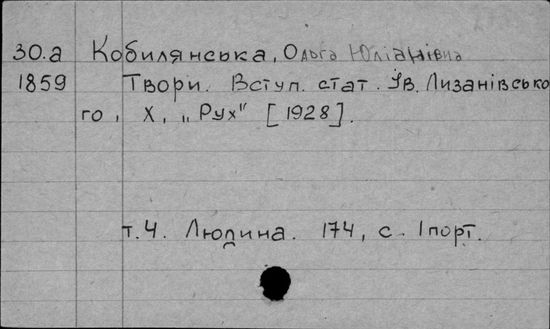 30.а Кобилянська, Ольга Юліанівна
1859 Твори. Вступ. стат. Ів. Лизанівсько
го, Х, „Рух" [1928].
т.4. Людина. 174, с. 1 порт.